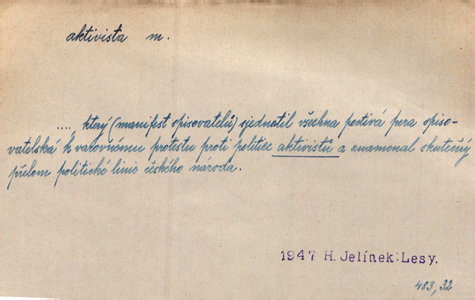 aktivista m.
.... který (manifest spisovatelů) sjednotil všechna poctivá pera spiso-
vatelská k varovnému protestu proti politice aktivistů a znamenal skutečný
přelom politické linie českého národa.
1947 H. Jelínek: Lesy.
483, 32